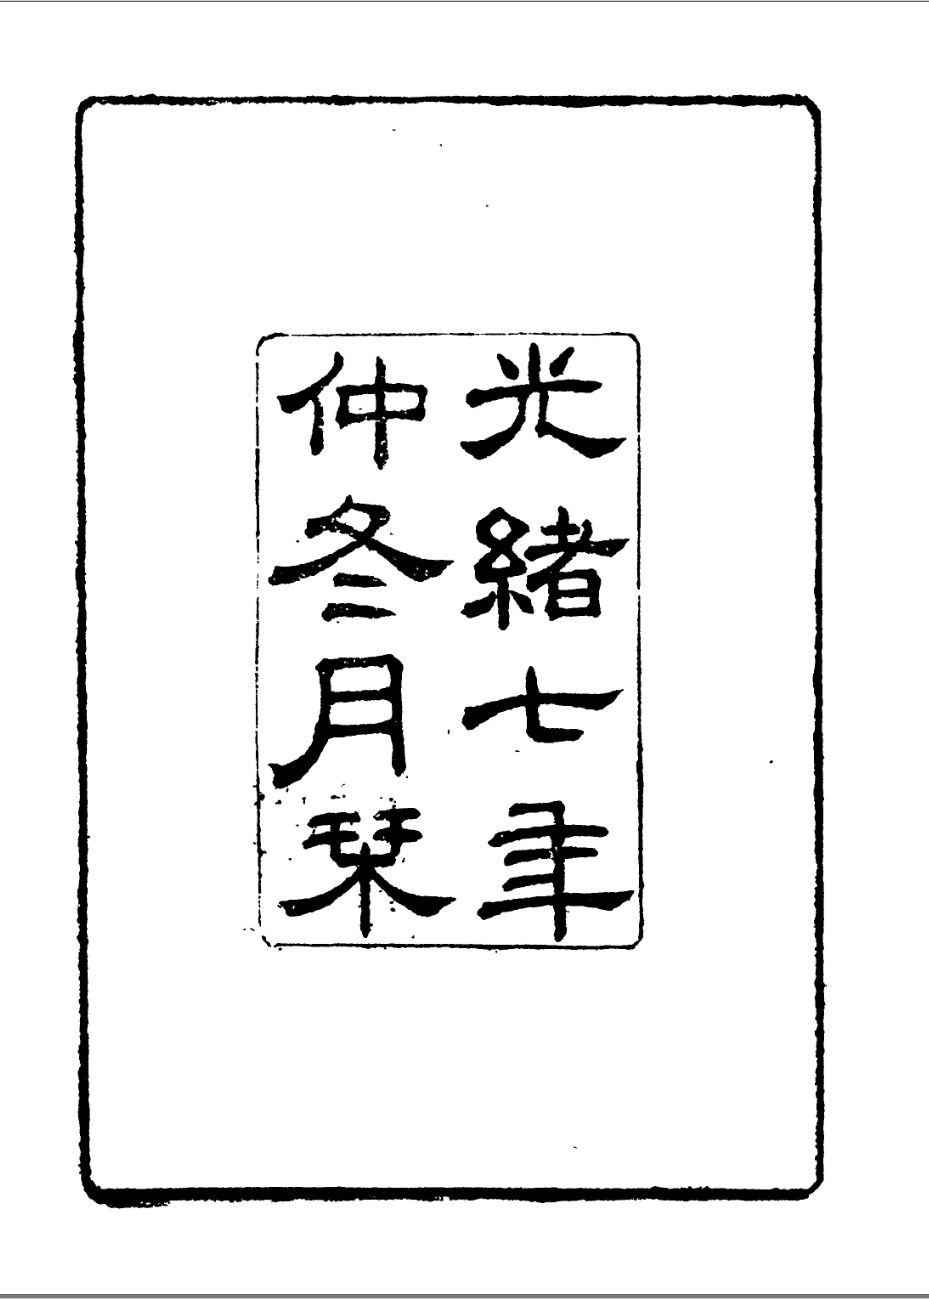 光緒七年
仲冬月栞